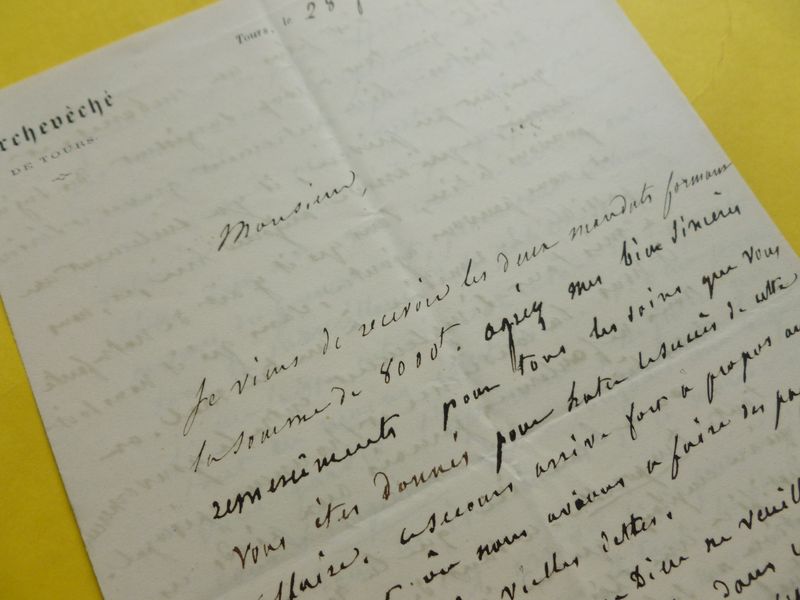 Tours, le 28
rchevêché
DE TOURS.
Monsieur,
Je viens de recevoir les deux mandats formant
la somme de 8000f. agréez mes bien sincères
remercîments pour tous les soins que vous
vous êtes donnés pour hater le succès de cette
affaire. ce secours arrive fort à propos au
où nous avions a faire des pa
vielles dettes.
Dieu ne veuille
dans